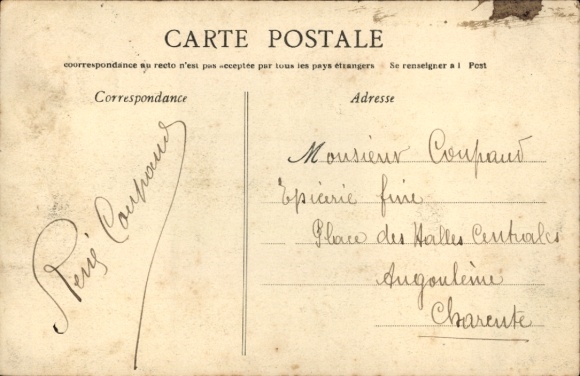 CARTE POSTALE
coorrespondance au recto n'est pas acceptée par tous les pays étrangers Se renseigner a l Post
Correspondance
Adresse
René Coupaud
Monsieur Coupaud
Epicerie fine
Place des Halles Centrales
Angoulême
Charente